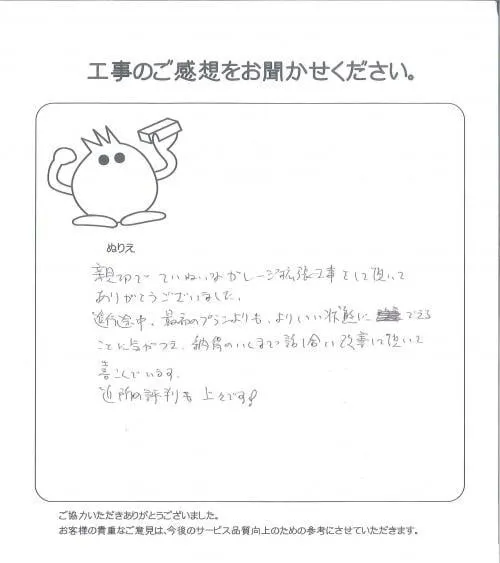 工事のご感想をお聞かせください。
ぬりえ
親切で ていねいなガレージ拡張工事をして頂いて
ありがとうございました。
途中、最初のプランよりも、よりいい状態に できる
ことに気がつき、納得のいくまで話し合い改善して頂いて
喜こんでいます。
近所の評判も 上々です!
ご協力いただきありがとうございました。
お客様の貴重なご意見は、今後のサービス品質向上のための参考にさせていただきます。